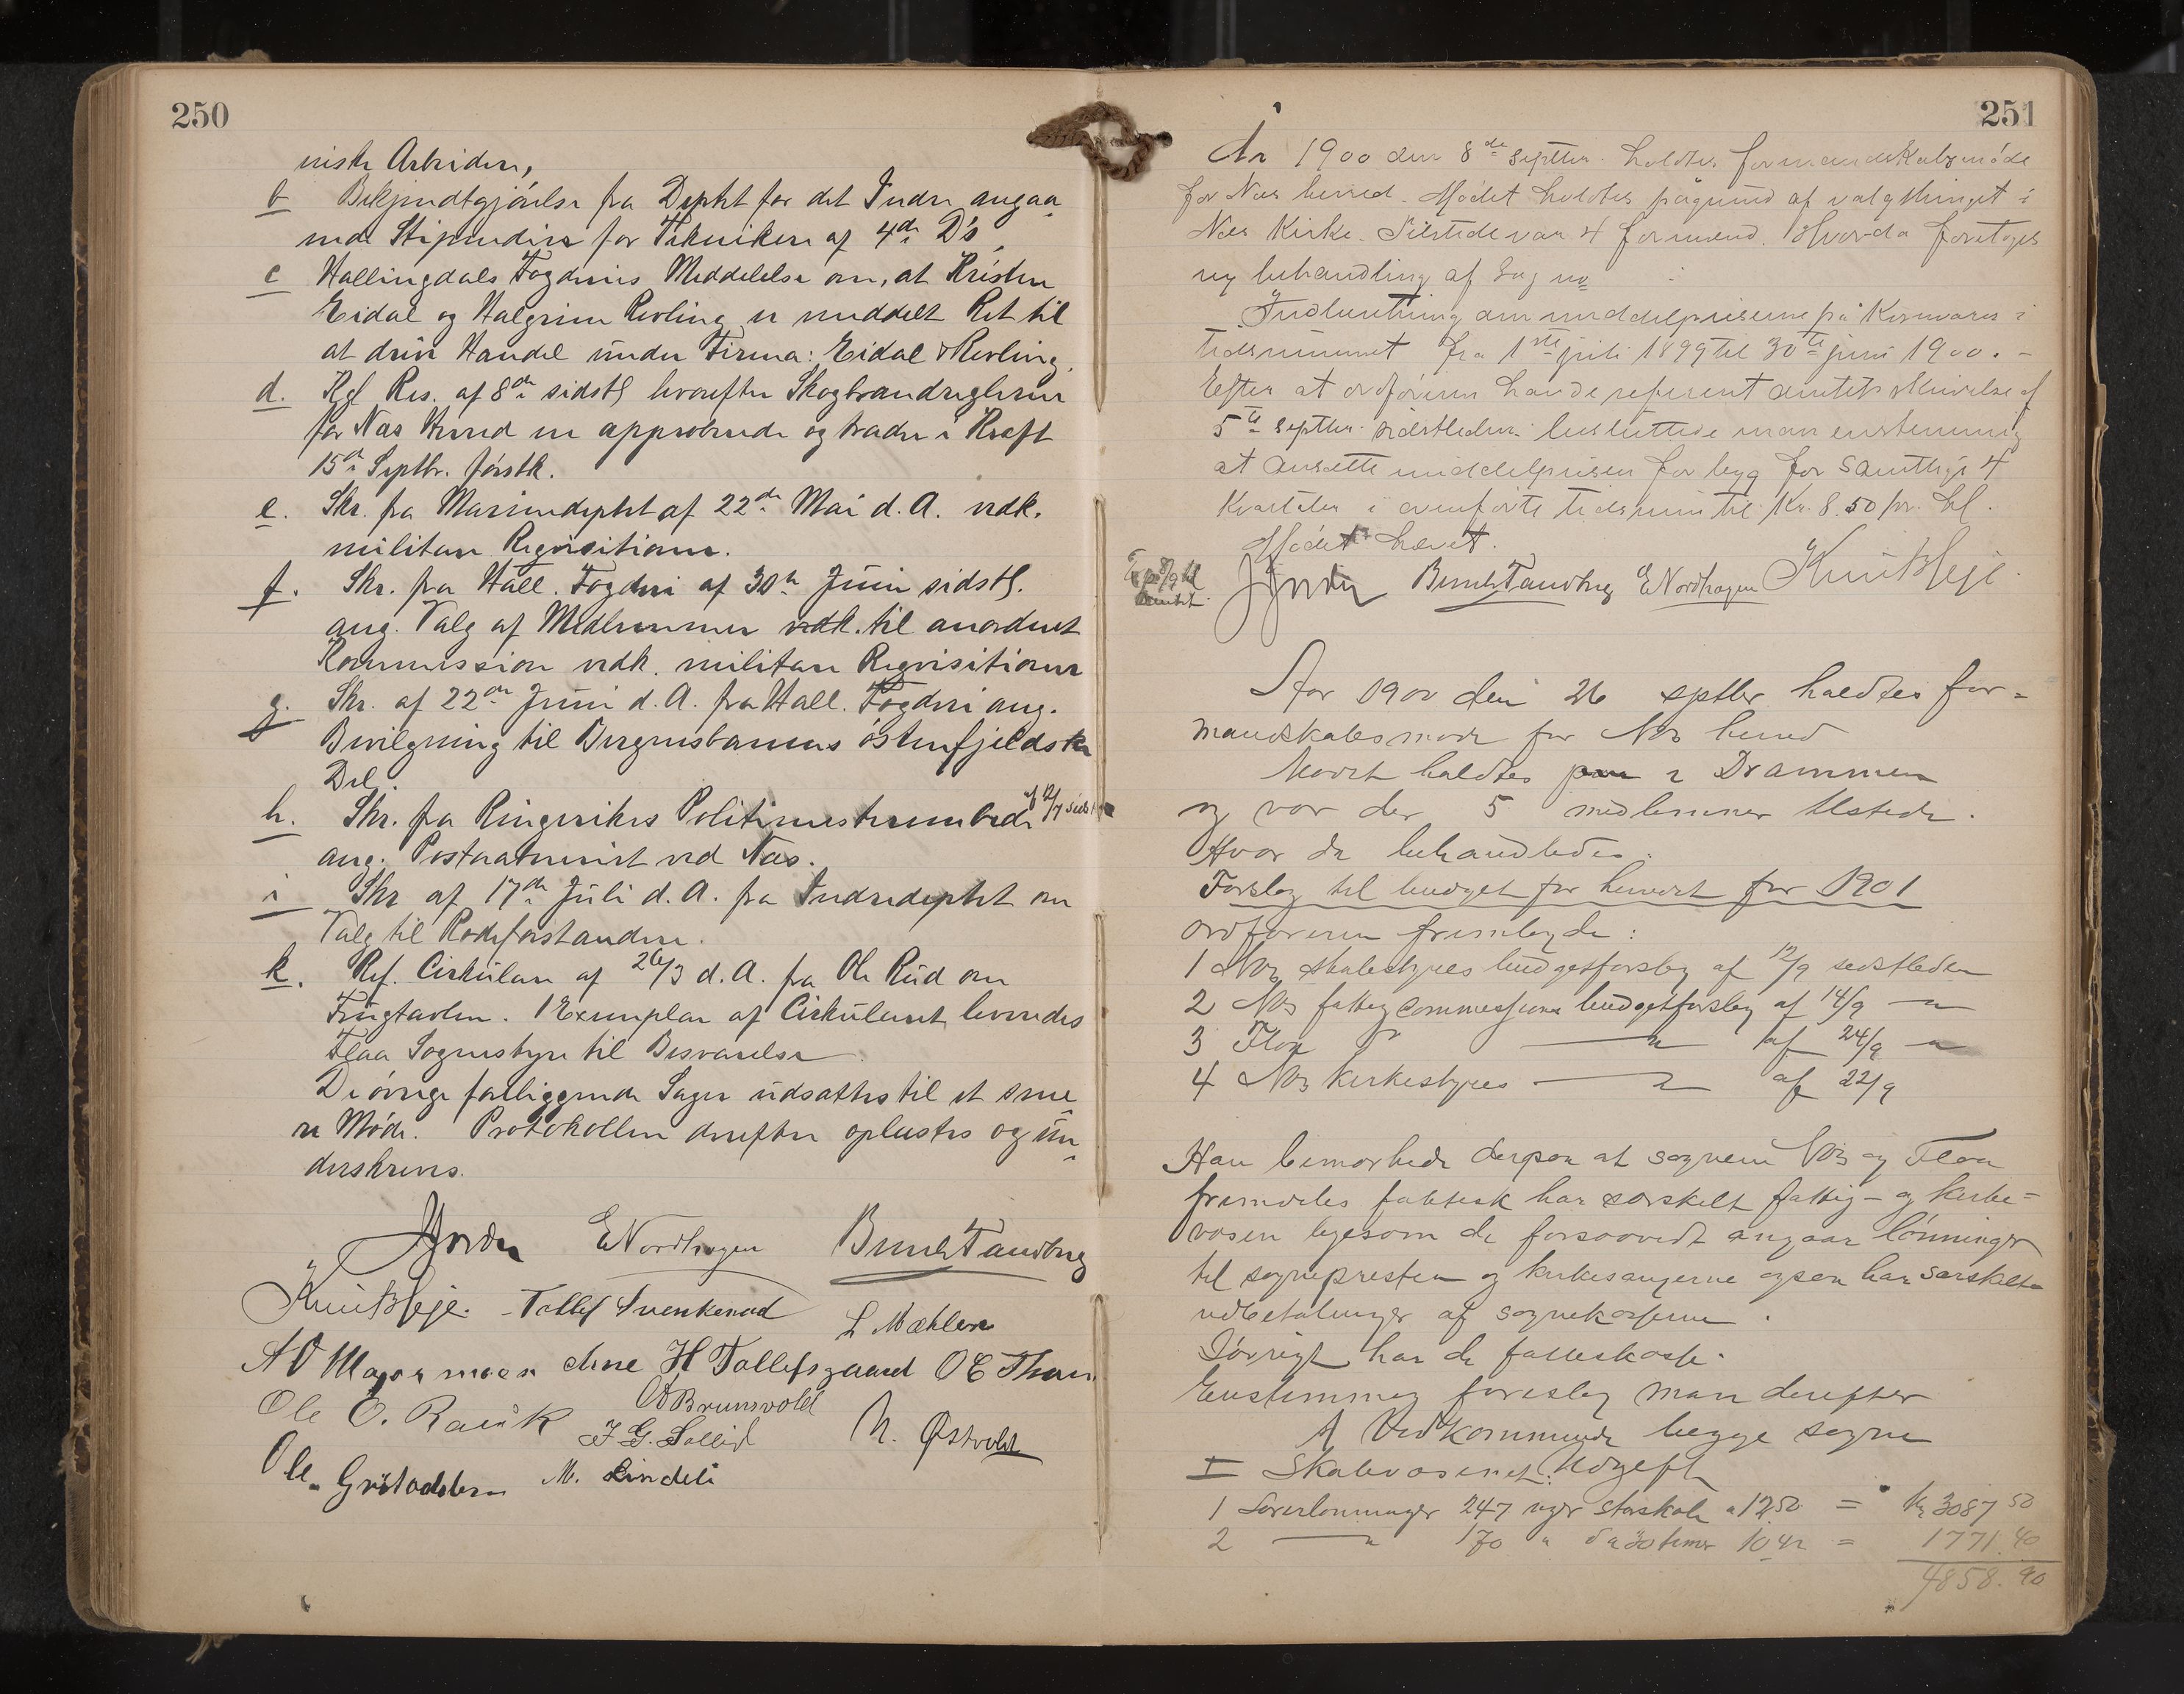 250
niske Arbeider,
b Bekjendtgjörelse fra Depktet for det Indre angaa-
ende Stipendier for Teknikere af 4de D's.
c Hallingdals Fogderis Meddelelse om, at Kristen
Eidal og Halgrim Revling er meddelt Ret til
at drive Handel under Firma: Eidal & Revling.
d. Kgl Res. af 8de sidstl hvorefter Skogbrandreglerne
for Næs Herred er approberede og træder i Kraft
15de Septbr. förstk.
e. Skr. fra Marinedepktet af 22de Mai d. A. vedk.
militære Reqvisitioner.
f. Skr. fra Hall. Fogderi af 30te Juni sidstl.
ang. Valg af Medlemmer vedk. til anordnet
Kommission vedk. militære Reqvisitioner
g. Skr. af 22de Juni d. A. fra Hall. Fogderi ang.
Bevilgning til Bergensbanens östenfjeldske
Del.
h. Skr. fra Ringerikes Politimesterembede af 12/7 sidstl
ang. Postaabneriet ved Næs.
i Skr af 17de Juli d. A. fra Indredepktet om
Valg til Rodeforstandere.
k. Ref. Cirkulære af 26/3 d. A. fra Ole Rud om
Tingtavlen. 1 Exemplar af Cirkulæret leveredes
Flaa Sognestyre til Besvarelse
De övrige foreliggende Sager udsattes til et sene-
re Möde. Protokollen derefter oplæstes og un-
derskreves.
E Nordhagen Berndt Tandberg
Knut Heje. Tollef Svenkerud L Mæhlen
Arne H Tollefsgaard O E Thoen
Ole O. Rauk O Brunsvold
T. G. Sollid N. Østvold
Ole Grötadalen M. Lindeli
251
År 1900 den 8de septbr. holdtes formandskabsmöde
for Næs herred. Mödet holdtes pågrund af valgthinget i
Næs Kirke. Tilstede var 4 formænd. Hvorda foretoges
ny behandling af Sag no
Indhentning om middelpriserne på Kornvarer i
tidsrummet fra 1ste juli 1899 til 30te juni 1900. –
Efter at ordföreren havde referert amtets skrivelse af
5te septbr. sidstleden besluttede man enstemmig
at ansætte middelprisen for byg for samtlige 4
Kvartaler i ovenförte tidsrum til Kr. 8.50 pr. hl.
Mödet hævet.
Exp 8/9 til
Amtet.
Berndt Tandberg E Nordhagen Knut Heje.
Aar 1900 den 26 septbr holdtes for-
mandskabsmöde for Næs herred
Mödet holdtes paa i Drammen
og var der 5 medlemmer tilstede.
Hvor da behandledes:
Forslag til budget for herredet for 1901
Ordföreren fremlagde:
1 Næs skolestyres budgetforslag af 12/9 sidstleden
2 Næs fattigcommissjons budgetforslag af 14/9 — " —
3 Flaa " — " — af 24/9 — " —
4 Næs kirkestyres — " — af 22/9
Han bemærkede derpaa at sognene Næs og Flaa
fremdeles faktisk har særskilt fattig- og kirke-
væsen ligesom de forsaavidt angaar lönninger
til sognepresten og kirkesangerne ogsaa har særskilte
udbetalinger af sognekasserne.
Iövrigt har de fælleskasse.
Enstemmig foreslog man derefter
A Vedkommende begge sogne
I Skolevæsenet: Udgift
1 Lærerlönninger 247 uger storskole a 12.50 = Kr 3087 50
2 — " — 170 " a 30 timer 10.42 = 1771.40
4858.90